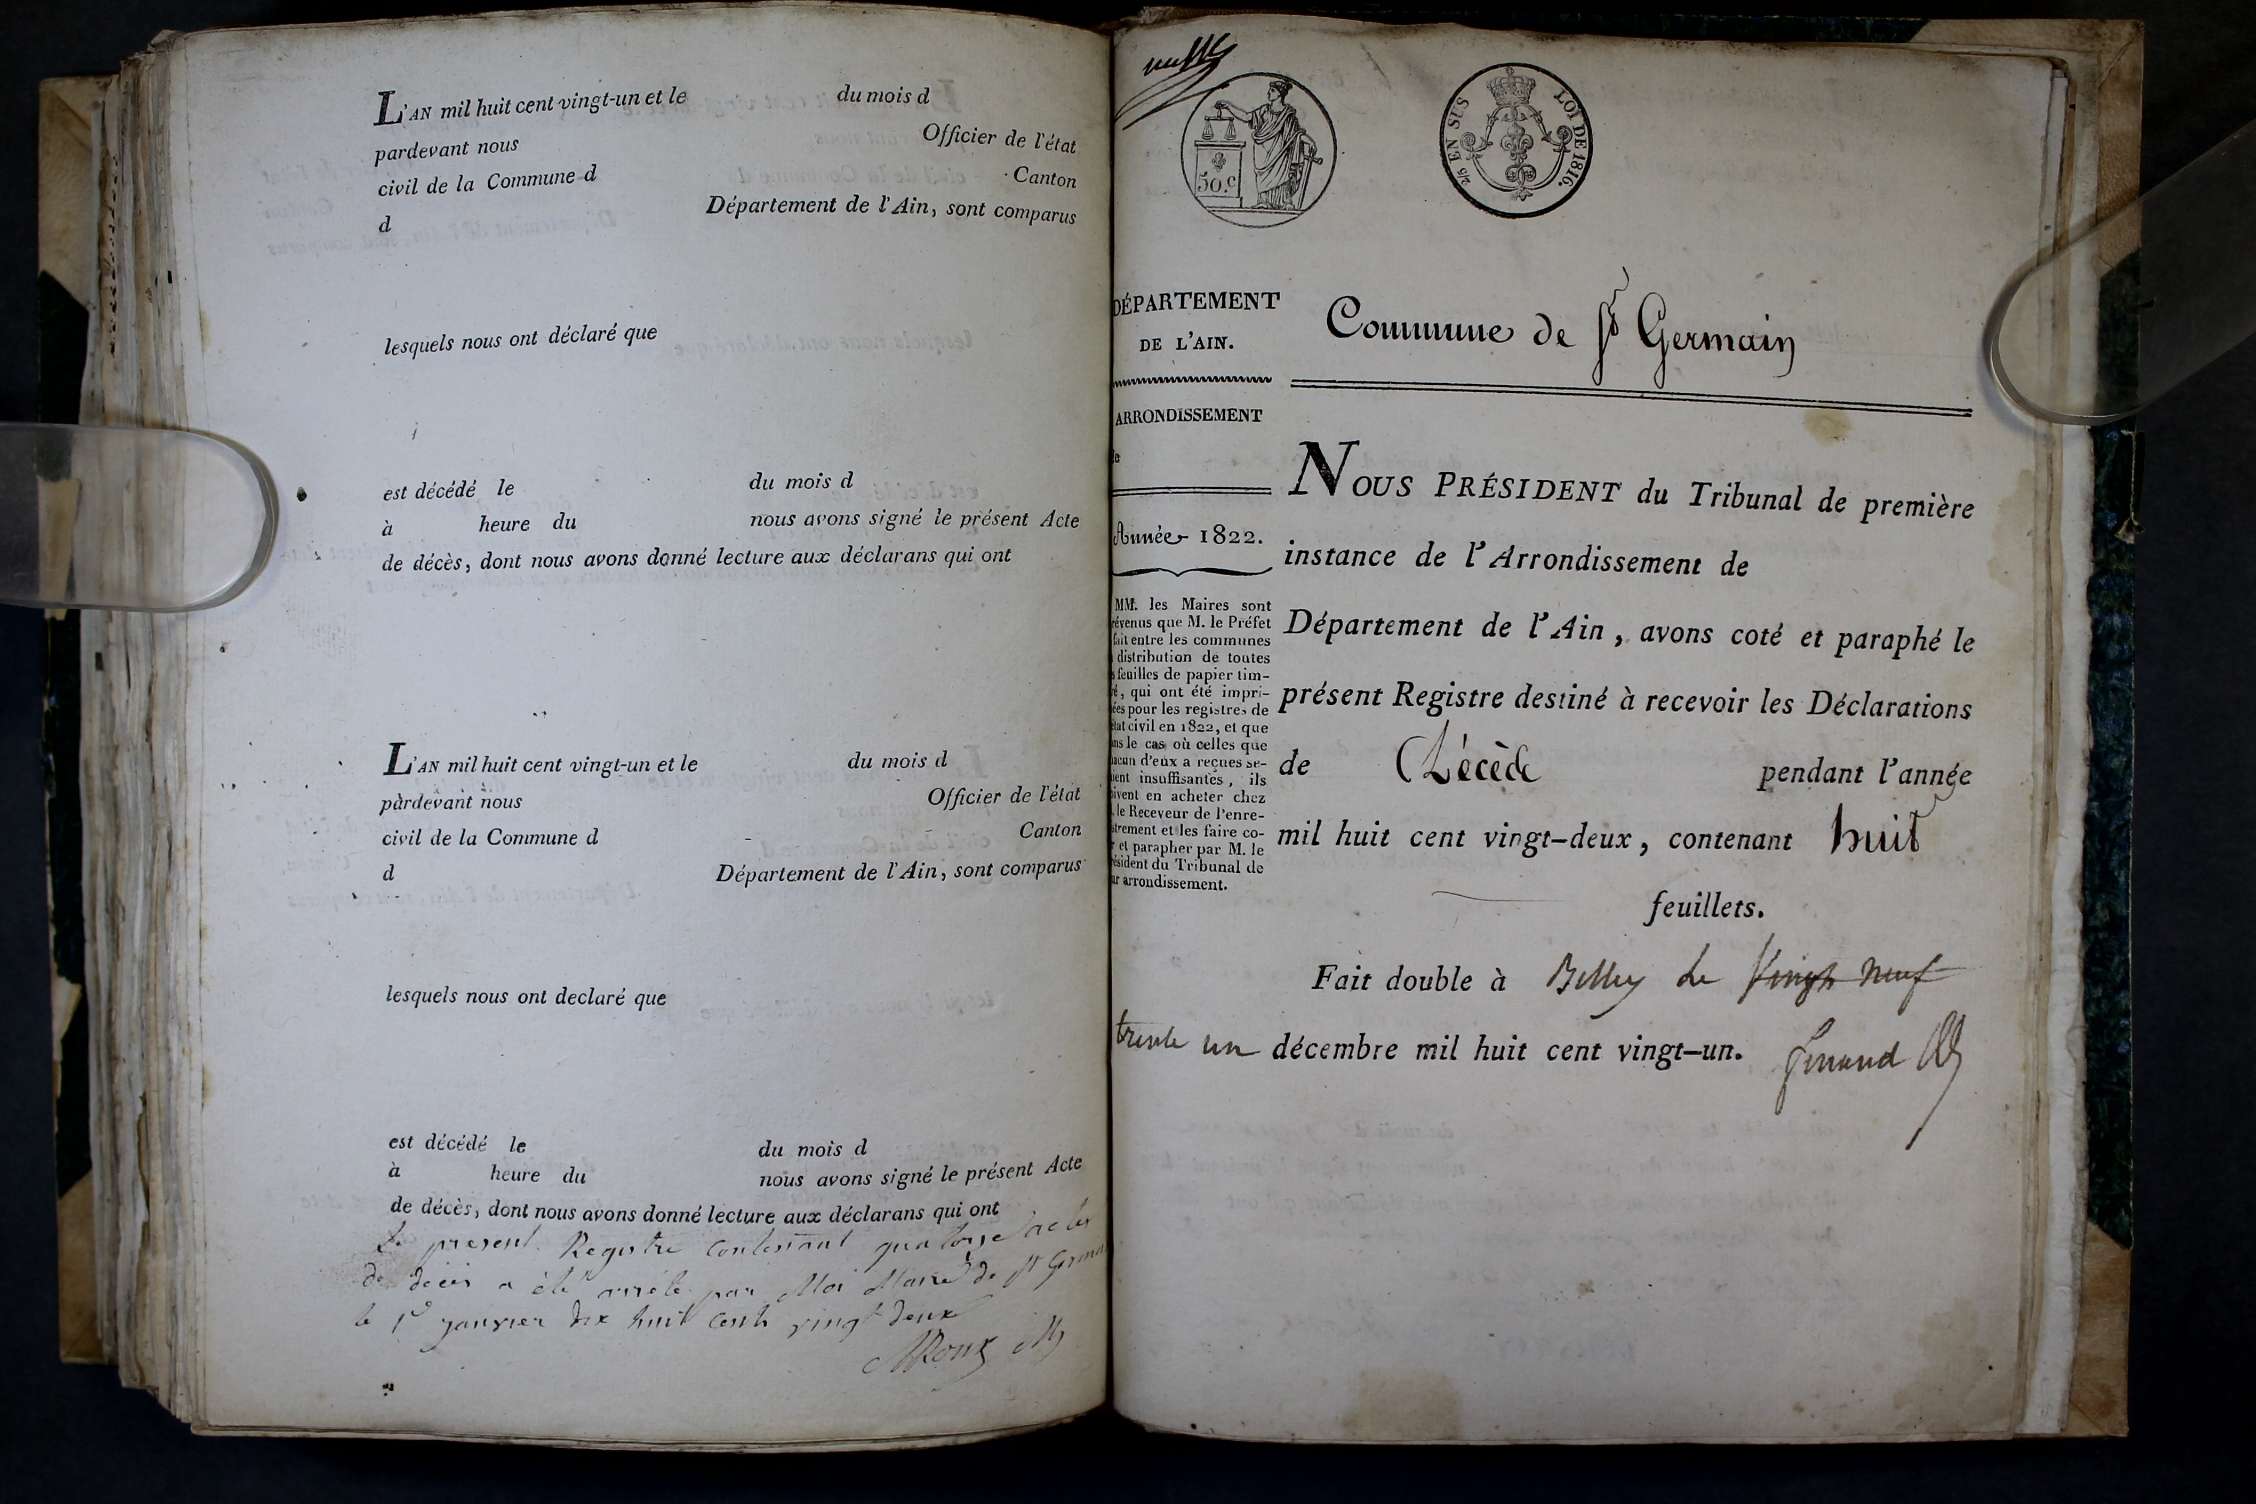 L'AN mil huit cent vingt-un et le du mois d
pardevant nous Officier de l'état
civil de la Commune d Canton
d Département de l'Ain, sont comparus
lesquels nous ont déclaré que
est décédé le du mois d
à heure du nous avons signé le présent Acte
de décès, dont nous avons donné lecture aux déclarans qui ont
L'AN mil huit cent vingt-un et le du mois d
pardevant nous Officier de l'état
civil de la Commune d Canton
d Département de l'Ain, sont comparus
lesquels nous ont declaré que
est décédé le du mois d
à heure du nous avons signé le présent Acte
de décès, dont nous avons donné lecture aux déclarans qui ont
Le present Registre contenant quatorze actes
de décès a été arrêté par Moi Maire de St Germain
le 1er janvier dix huit cents vingt deux
50.c
2/5 EN SUS LOI DE 1816.
DÉPARTEMENT
DE L'AIN.
Commune de St Germain
ARRONDISSEMENT
de
Année 1822.
MM. les Maires sont
révenus que M. le Préfet
fait entre les communes
distribution de toutes
s feuilles de papier tim-
ré, qui ont été impri-
ées pour les registres de
état civil en 1822, et que
ans le cas où celles que
hacun d'eux a reçues se-
ient insuffisantes, ils
oivent en acheter chez
. le Receveur de l'enre-
strement et les faire co-
r et parapher par M. le
résident du Tribunal de
ur arrondissement.
NOUS PRÉSIDENT du Tribunal de première
instance de l'Arrondissement de
Département de l'Ain, avons coté et paraphé le
présent Registre destiné à recevoir les Déclarations
de Décès pendant l'année
mil huit cent vingt-deux, contenant huit
feuillets.
Fait double à Belley le vingt neuf
trente un décembre mil huit cent vingt-un.